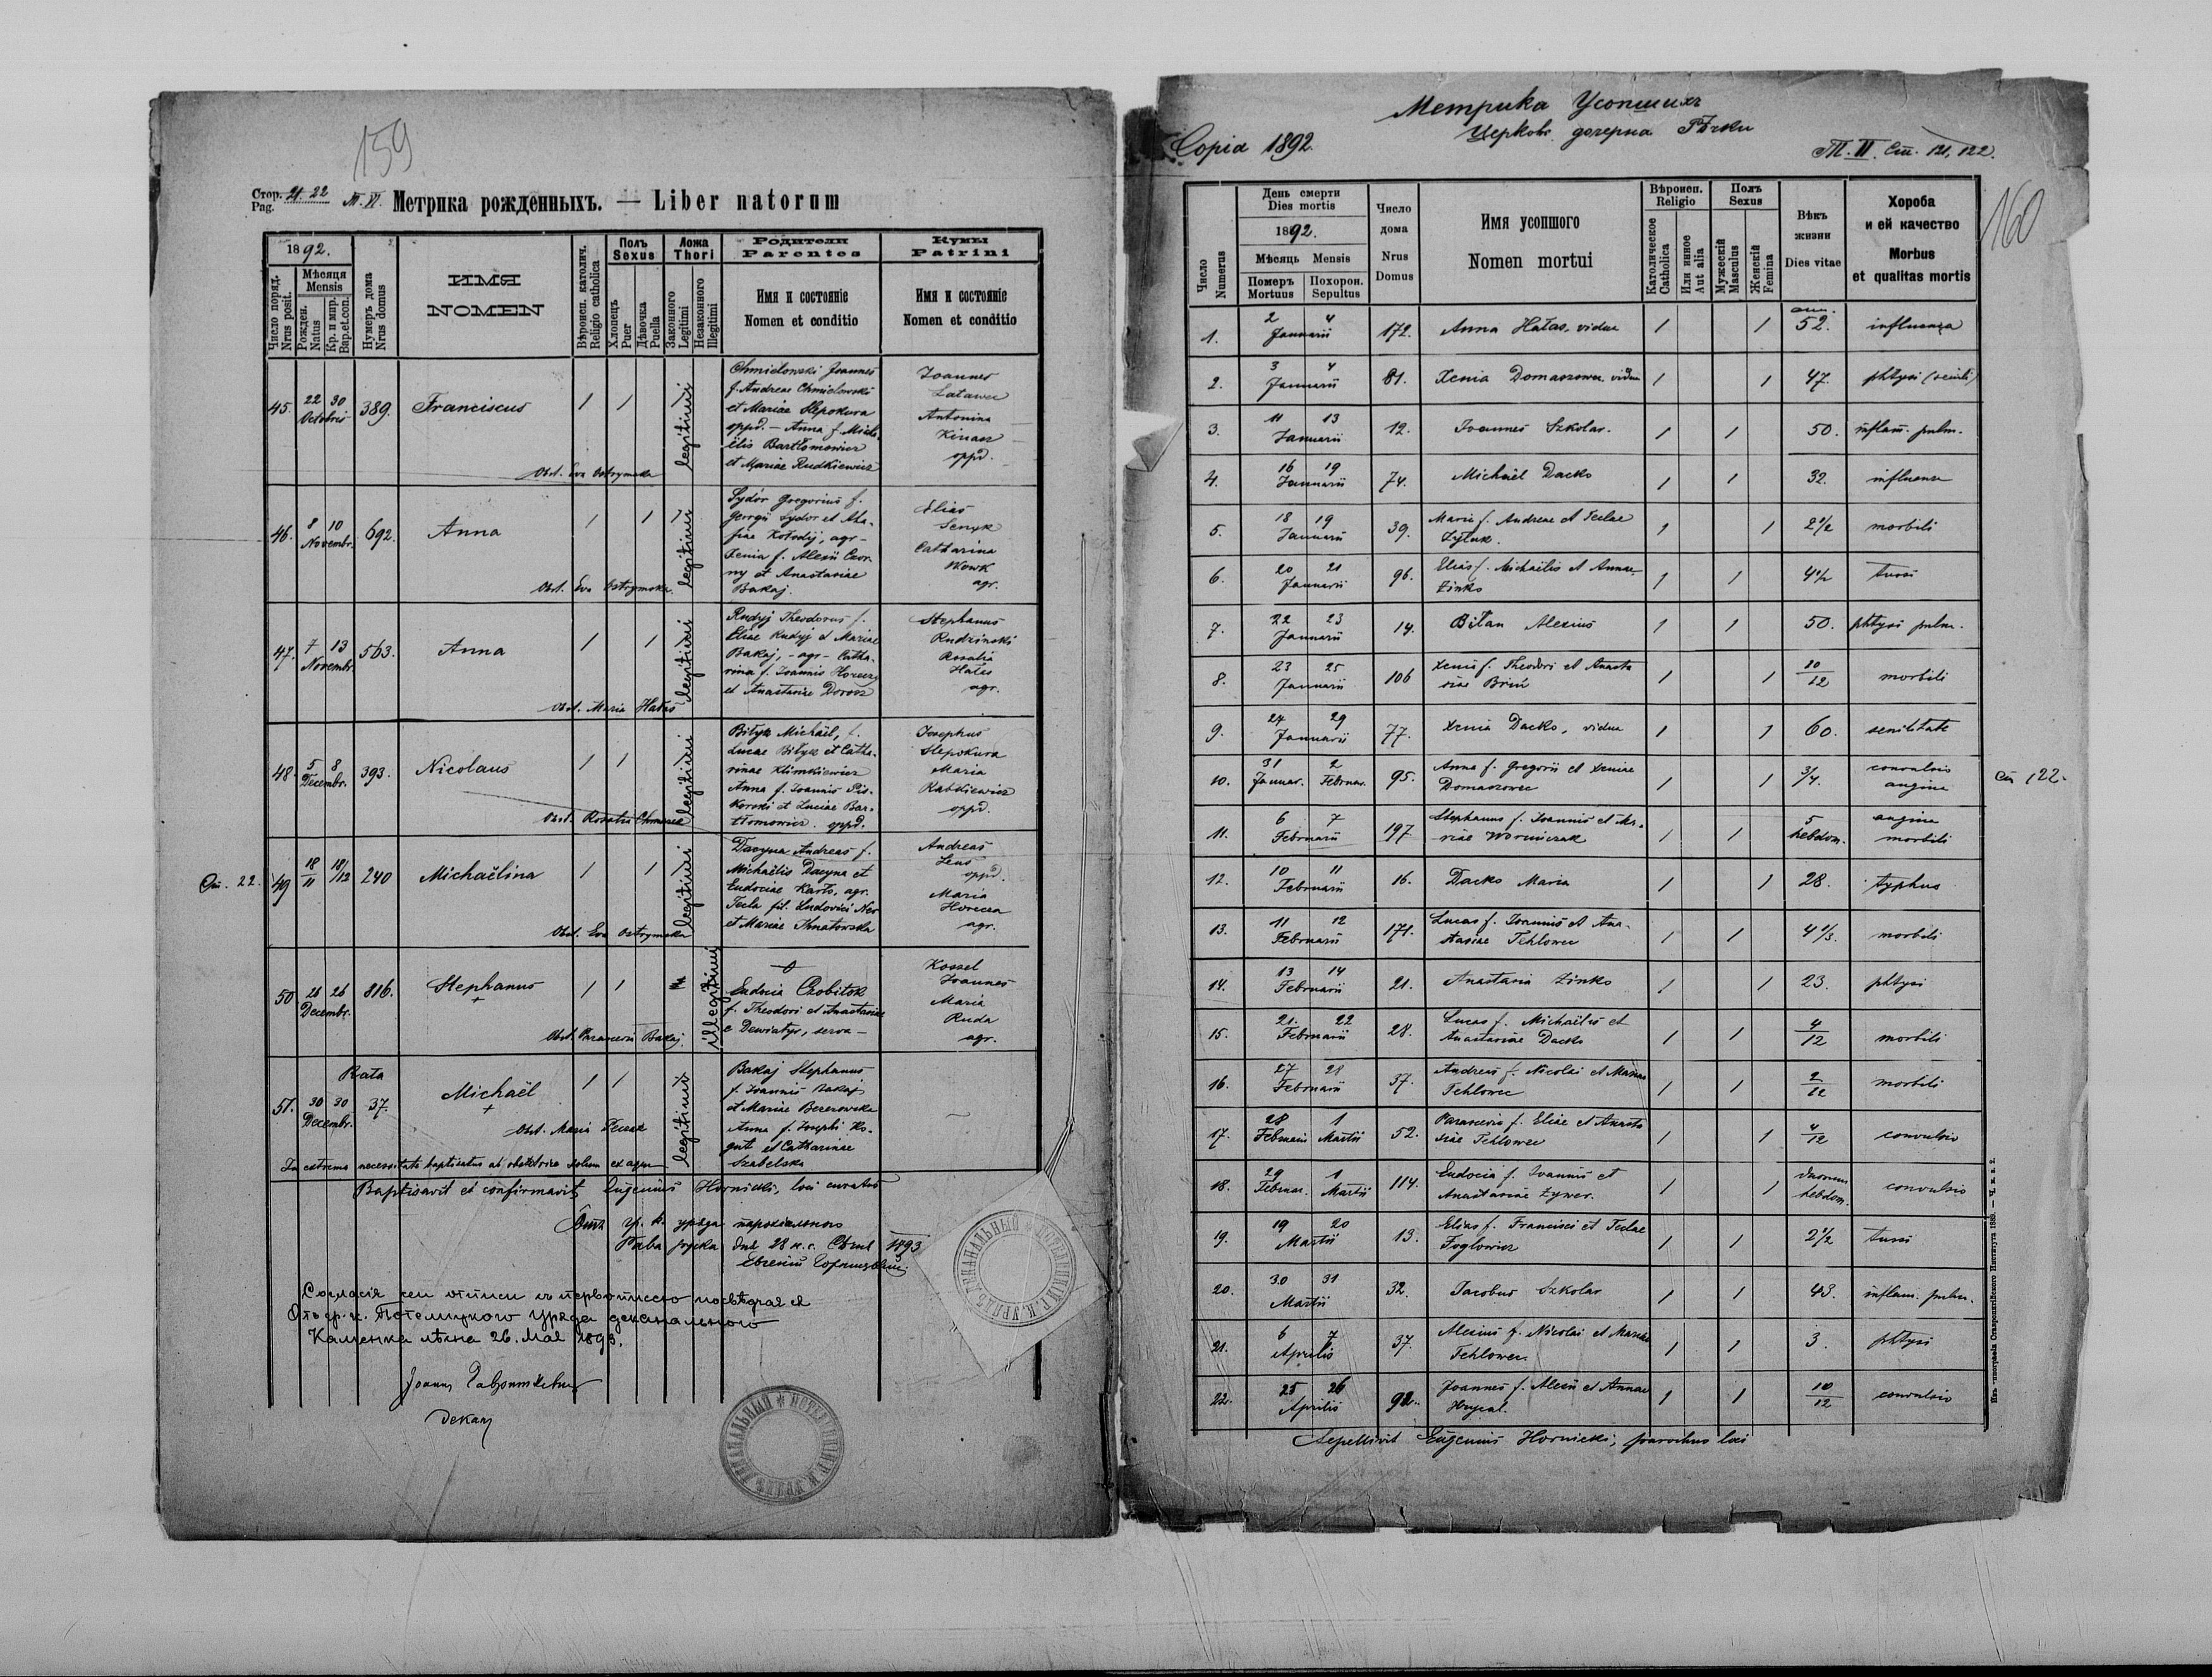 159
Стор. 21. 22
Pag.
Т. VI. Метрика рожденныхъ. — Liber natorum
1892.
Число поряд.
Nrus posit.
Мѣсяця
Mensis
Рожден.
Natus
Кр. и мир.
Bap. et con.
Нумеръ дома
Nrus domus
ИМЯ
NOMEN
Вѣроисп. католич.
Religio catholica
Полъ
Sexus
Хлопецъ
Puer
Дѣвочка
Puella
Ложа
Thori
Законного
Legitimi
Незаконного
Illegitimi
Родители
Parentes
Имя и состояніе
Nomen et conditio
Кумы
Patrini
Имя и состояніе
Nomen et conditio
45. 22 30 Octobris 389. Franciscus / / legitimi
Chmielowski Joannes
f. Andreae Chmielowski
et Mariae Slepokura
oppd. — Anna f. Micha-
ëlis Bartłomowicz
et Mariae Rudkiewicz
Joannes
Latawec
Antonina
Kinasz
oppd.
Obst. Eva Ostrymska
46. 8 10 Novembr. 692. Anna / / legitimi
Sydor Gregorius f.
Georgii Sydor et Aha-
fiae Kołodij, agr —
Xenia f. Alexii Czor-
ny et Anastasiae
Bakaj.
Elias
Senyk
Catharina
Wowk
agr.
Obst. Eva Ostrymska.
47. 7 13 Novembr. 563. Anna / / legitimi
Rudyj Theodorus f.
Eliae Rudyj et Mariae
Bakaj, - agr - Catha-
rina f. Joannis Horecz
et Anastasiae Dorosz
Stephanus
Rudzinski
Rosalia
Hałas
agr.
Obst. Maria Hałas
48. 5 8 Decembr. 393. Nicolaus / / legitimi
Biłyk Michaël, f.
Lucae Biłyk et Catha-
rinae Klimkiewicz
Anna f. Joannis Pis-
korski et Luciae Bar-
tłomowicz. oppd.
Josephus
Slepokura
Maria
Rabkiewicz
oppd.
Obst. Rosalia
Ст. 22.
49 18/11 18/12 240 Michaëlina / / legitimi
Dacyna Andreas f.
Michaëlis Dacyna et
Eudociae Karto, agr.
Tecla fil. Ludovici Ner
et Mariae Ihnatowska
Andreas
Lens
oppd.
Maria
Horecza
agr.
Obst. Eva Ostrymska
50. 26 26 Decembr. 816. Stephanus / / illegitimi
+
Eudocia Czobitok
f. Theodori et Anastasiae
e Dewiatyr, serva —
Kossel
Joannes
Maria
Ruda
agr.
Obst. Parascevia Bakaj.
Rata
51. 30 30 Decembr. 37. Michaël / / legitimi
+
Bakaj Stephanus
f. Joannis Bakaj
et Mariae Berezowska
Anna f. Josephi Ko-
gut et Catharinae
Szabelska
Obst. Maria
In extrema necessitate baptisatus ab obstetrice solum ex aqua
Baptisavit et confirmavit Eugenius Hornicki, loci curatus
Отъ гр. к. уряда парохіального
Рава руска дня 28 н. с. Січня 1893
Евгеній Горницкій
Согласіе сеи описи съ первописею посвѣдчае ся
Отъ гр. к. Потелицкого Уряда деканального
Каменка лѣсна 26. Мая 1893.
декан
Copia 1892.
Метрика Усопшихъ
Церковь дочерна Рѣчки
Т. II. Ст. 121, 122.
160
Число
Numerus
День смерти
Dies mortis
1892.
Мѣсяць Mensis
Померъ
Mortuus
Похорон.
Sepultus
Число
дома
Nrus
Domus
Имя усопшого
Nomen mortui
Вѣроисп.
Religio
Католическое
Catholica
Или инное
Aut alia
Полъ
Sexus
Мужескій
Masculus
Женскій
Femina
Вѣкъ
жизни
Dies vitae
Хороба
и ей качество
Morbus
et qualitas mortis
1. 2 4 Januarii 172. Anna Hałas, vidua / / ann. 52. influenza
2. 3 4 Januarii 81. Xenia Domaszowec vidua / / 47. phtysi
3. 11 13 Januarii 12. Joannes Szkolar. / / 50. inflam. pulm.
4. 16 19 Januarii 74. Michaël Dacko / / 32. influenza
5. 18 19 Januarii 39. Maria f. Andreae et Teclae
Zyluk. / / 2 1/2 morbili
6. 20 21 Januarii 96. Elias f. Michaëlis et Annae
Zinko / / 4 1/2 tussi
7. 22 23 Januarii 14. Biłan Alexius / / 50. phtysi pulm.
8. 23 25 Januarii 106 Xenia f. Theodori et Anasta
siae Briń / / 10/12 morbili
9. 27 29 Januarii 77. Xenia Dacko, vidua / / 60. senilitate
10. 31 Januar. 2 Februar. 95. Anna f. Gregorii et Xeniae
Domaszowec / / 3/4. convulsio
angina
Ст 122.
11. 6 7 Februarii 197 Stephanus f. Joannis et Ma-
riae Worniczak / / 5 hebdom. angina
morbili
12. 10 11 Februarii 16. Dacko Maria / / 28. typhus
13. 11 12 Februarii 171. Lucas f. Joannis et Ana-
stasiae Tehlowec / / 4 1/3. morbili
14. 13 14 Februarii 21. Anastasia Zinko / / 23. phtysi
15. 21. 22 Februarii 28. Lucas f. Michaëlis et
Anastasiae Dacko / / 4/12 morbili
16. 27 28 Februarii 37. Andreas f. Nicolai et Mariae
Tehlowec / / 2/12 morbili
17. 28 Februarii 1 Martii 52. Parascevia f. Eliae et Anasta
siae Tehlowec / / 4/12 convulsio
18. 29 Februar. 1 Martii 114. Eudocia f. Joannis et
Anastasiae Zywer. / / duorum
hebdom. convulsio
19. 19 20 Martii 13. Elias f. Francisci et Teclae
Foglowicz / / 2 1/2 tussi
20. 30 31 Martii 32. Jacobus Szkolar / / 43. inflam. pulm.
21. 6 7 Aprilis 37. Alexius f. Nicolai et Mariae
Tehlowec. / / 3. phtysi
22. 25 26 Aprilis 92. Joannes f. Alexii et Annae
Hrycal. / / 10/12 convulsio
Sepelivit Eugenius Hornicki, parochus loci
Изъ типографіи Ставропигійского Института 188